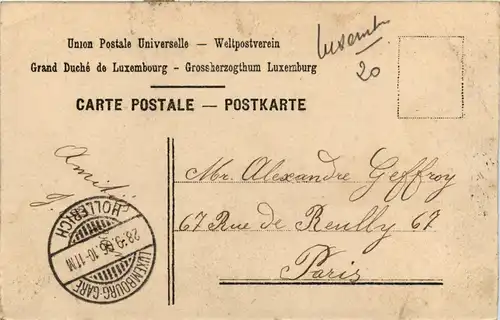 Union Postale Universelle — Weltpostverein
Grand Duché de Luxembourg - Grossherzogthum Luxemburg
CARTE POSTALE — POSTKARTE
Luxemb
20
Amitié
HOLLERICH
28.9.06.10-11M
LUXEMBOURG-GARE
Mr. Alexandre Geffroy
67 Rue de Reully 67
Paris